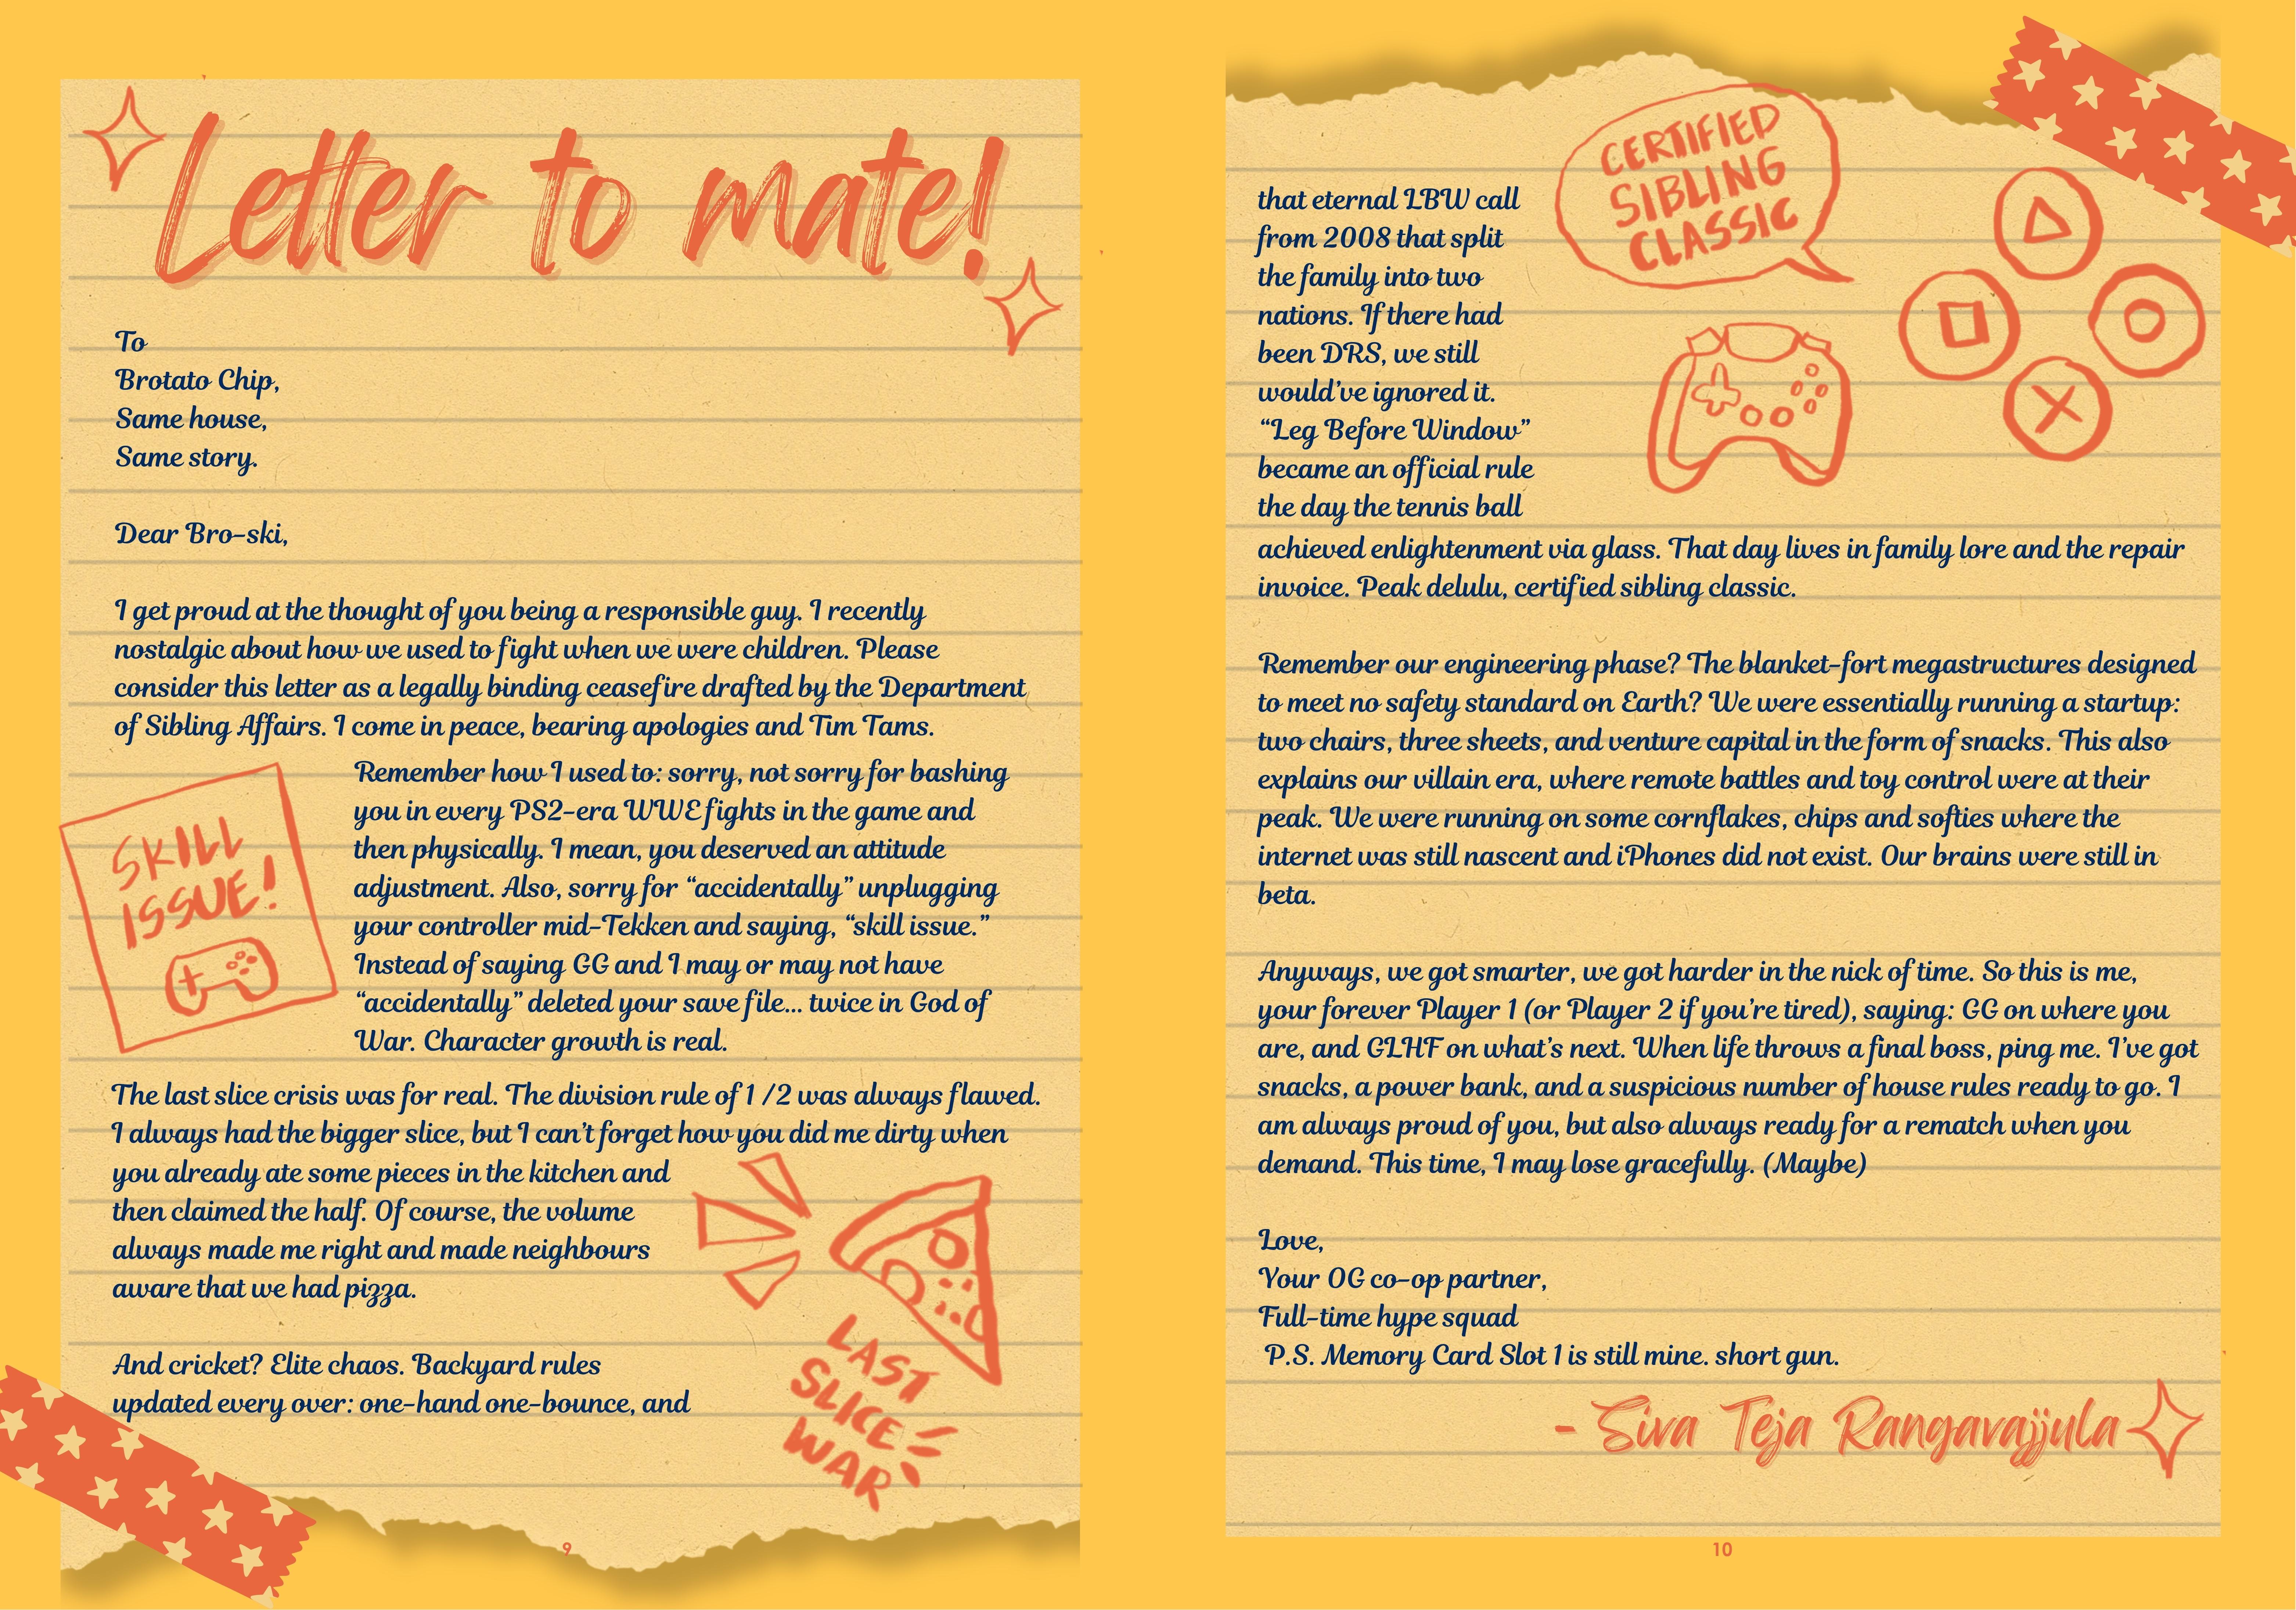 Letter to mate!
To
Brotato Chip,
Same house,
Same story.
Dear Bro-ski,
I get proud at the thought of you being a responsible guy. I recently
nostalgic about how we used to fight when we were children. Please
consider this letter as a legally binding ceasefire drafted by the Department
of Sibling Affairs. I come in peace, bearing apologies and Tim Tams.
Remember how I used to: sorry, not sorry for bashing
you in every PS2-era WWE fights in the game and
then physically. I mean, you deserved an attitude
adjustment. Also, sorry for “accidentally” unplugging
your controller mid-Tekken and saying, “skill issue.”
Instead of saying GG and I may or may not have
“accidentally” deleted your save file... twice in God of
War. Character growth is real.
SKILL
ISSUE!
The last slice crisis was for real. The division rule of 1 /2 was always flawed.
I always had the bigger slice, but I can’t forget how you did me dirty when
you already ate some pieces in the kitchen and
then claimed the half. Of course, the volume
always made me right and made neighbours
aware that we had pizza.
And cricket? Elite chaos. Backyard rules
updated every over: one-hand one-bounce, and
LAST
SLICE
WAR
9
that eternal LBW call
from 2008 that split
the family into two
nations. If there had
been DRS, we still
would’ve ignored it.
“Leg Before Window”
became an official rule
the day the tennis ball
achieved enlightenment via glass. That day lives in family lore and the repair
invoice. Peak delulu, certified sibling classic.
CERTIFIED
SIBLING
CLASSIC
Remember our engineering phase? The blanket-fort megastructures designed
to meet no safety standard on Earth? We were essentially running a startup:
two chairs, three sheets, and venture capital in the form of snacks. This also
explains our villain era, where remote battles and toy control were at their
peak. We were running on some cornflakes, chips and softies where the
internet was still nascent and iPhones did not exist. Our brains were still in
beta.
Anyways, we got smarter, we got harder in the nick of time. So this is me,
your forever Player 1 (or Player 2 if you’re tired), saying: GG on where you
are, and GLHF on what’s next. When life throws a final boss, ping me. I’ve got
snacks, a power bank, and a suspicious number of house rules ready to go. I
am always proud of you, but also always ready for a rematch when you
demand. This time, I may lose gracefully. (Maybe)
Love,
Your OG co-op partner,
Full-time hype squad
P.S. Memory Card Slot 1 is still mine. short gun.
- Siva Teja Rangavajjula
10